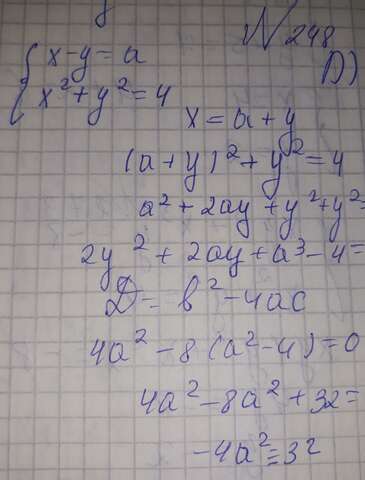 № 248
D)
{x-y=a
x²+y²=4
x=a+y
(a+y)²+y²=4
a²+2ay+y²+y²=
2y²+2ay+a³-4=
D=b²-4ac
4a²-8(a²-4)=0
4a²-8a²+32=
-4a²=32